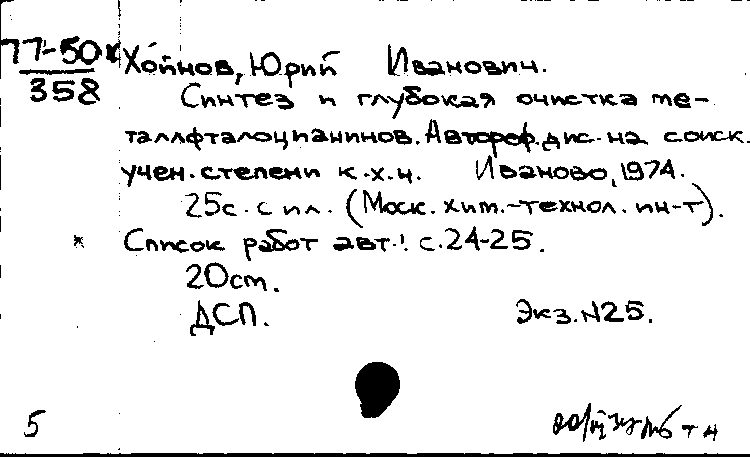 77-50к
358
Хойнов, Юрий Иванович.
Синтез и глубокая очистка ме-
таллфталоцианинов. Автореф. дис. на соиск.
учен. степени к.х.н. Иваново, 1974.
25с. с ил. (Моск. хим.-технол. ин-т).
* Список работ авт.: с.24-25.
20см.
ДСП. Экз.N25.
5